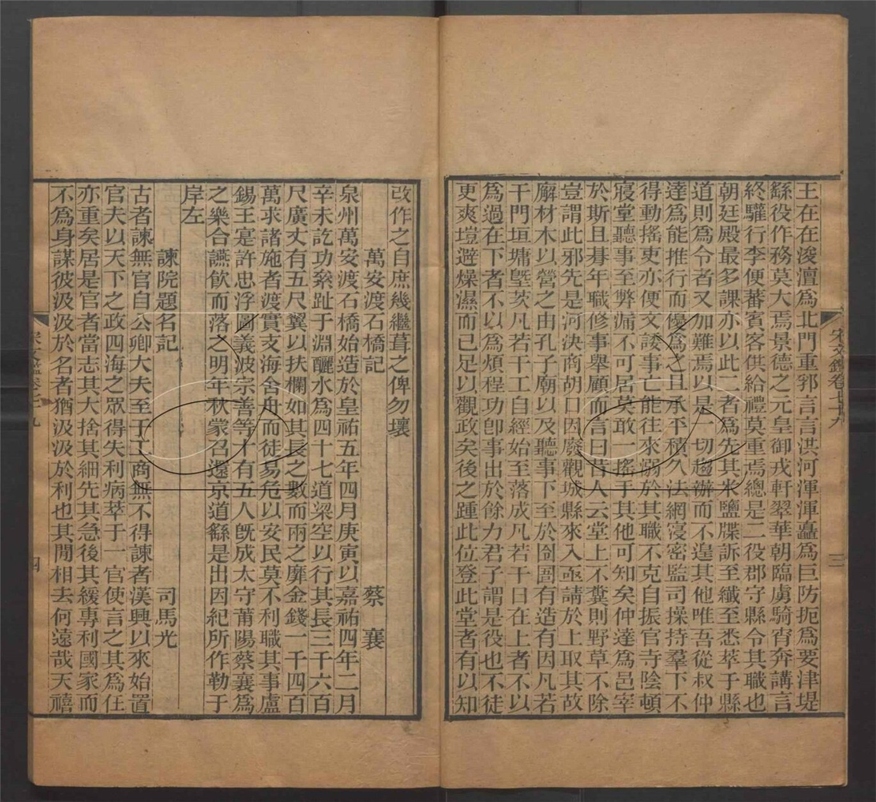 王在在浚澶為北門重郛言言洪河渾渾矗為巨防扼為要津堤
繇役作務莫大焉景德之元皇御戎軒翠華朝臨虜騎宵奔講言
終驩行李便蕃賓客供給禮莫重焉總是二役郡守縣令其職也
朝廷殿最多課亦以此二者為先其米鹽牒訴至纖至悉萃于縣
道則為令者又加難焉以是一切趨辦而不遑其他唯吾從叔仲
達為能推行而優為之且承平積久法網寖密監司操持羣下不
得動搖吏亦便文諉事亡能往來溺於其職不克自振官寺陰頓
寢堂聽事至弊漏不可居莫敢一搖手其他可知矣仲達為邑宰
於斯且朞年職修事舉顧而言曰昔人云堂上不糞則野草不除
豈謂此邪先是河決商胡口因廢觀城縣來入亟請於上取其故
廨材木以營之由孔子廟以及聽事下至於囹圄有造有因凡若
干門垣墉塈茨凡若干工自經始至落成凡若干日在上者不以
為過在下者不以為煩程功卽事出於餘力君子謂是役也不徒
更爽塏避燥濕而已足以觀政矣後之踵此位登此堂者有以知
宋文鑑卷七十九
三
改作之自庶幾繼葺之俾勿壞
萬安渡石橋記 蔡襄
泉州萬安渡石橋始造於皇祐五年四月庚寅以嘉祐四年二月
辛未訖功絫趾于淵釃水為四十七道梁空以行其長三千六百
尺廣丈有五尺翼以扶欄如其長之數而兩之靡金錢一千四百
萬求諸施者渡實支海舍舟而徒易危以安民莫不利職其事盧
錫王寔許忠浮圖義波宗善等十有五人旣成太守莆陽蔡襄為
之樂合讌飲而落之明年秋蒙召還京道繇是出因紀所作勒于
岸左
諫院題名記 司馬光
古者諫無官自公卿大夫至于工商無不得諫者漢興以來始置
官夫以天下之政四海之眾得失利病萃于一官使言之其為任
亦重矣居是官者當志其大捨其細先其急後其緩專利國家而
不為身謀彼汲汲於名者猶汲汲於利也其閒相去何遠哉天禧
宋文鑑卷七十九
四